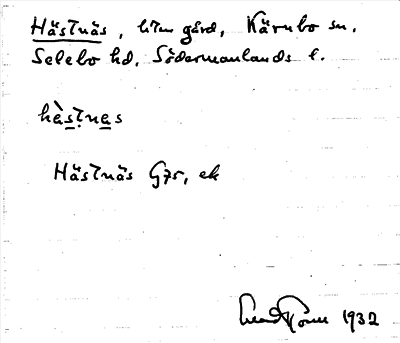 Hästnäs, liten gård, Kärnbo sn.
Selebo hd, Södermanlands l.
hàstnas
Hästnäs G75, ek
1932